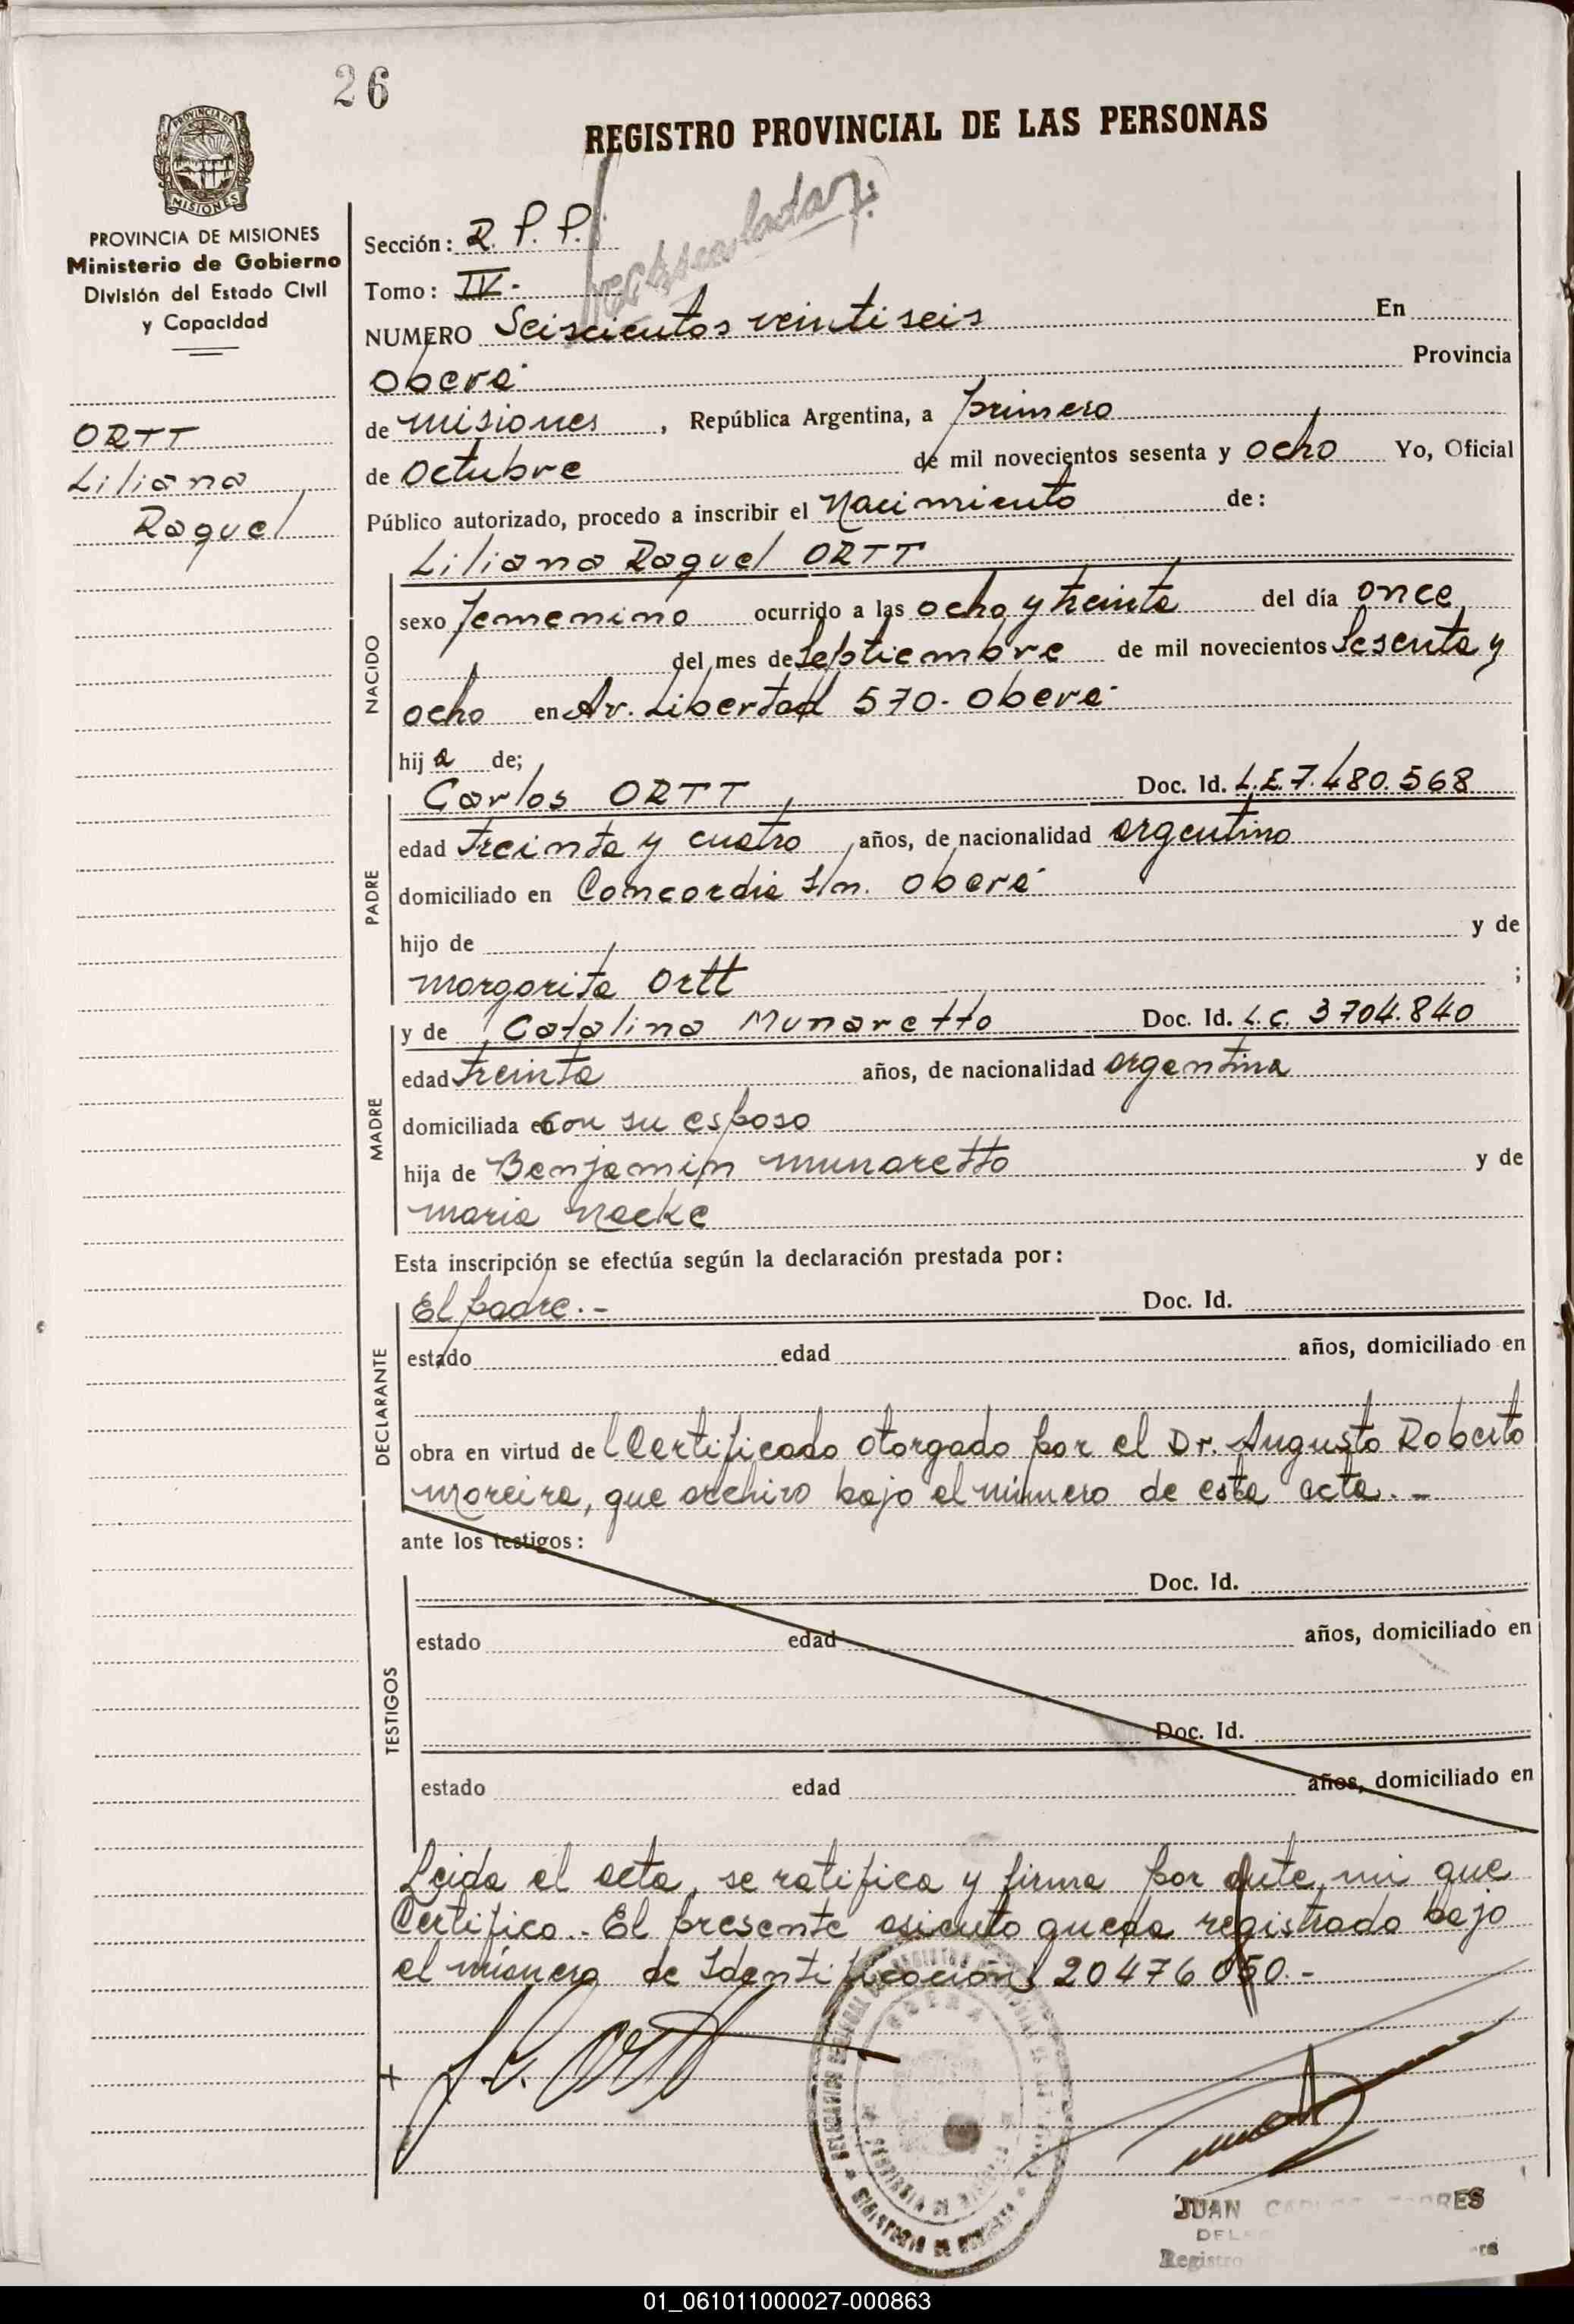 26
REGISTRO PROVINCIAL DE LAS PERSONAS
PROVINCIA DE MISIONES
MISIONES
PROVINCIA DE MISIONES
Ministerio de Gobierno
División del Estado Civil
y Capacidad
ORTT
Liliana
Raquel
Sección: R. P. P.
Tomo: IV.-
NUMERO Seiscientos veintiseis En
Oberá Provincia
de Misiones, República Argentina, a primero
de Octubre de mil novecientos sesenta y ocho Yo, Oficial
Público autorizado, procedo a inscribir el Nacimiento de:
Liliana Raquel ORTT
NACIDO
sexo femenino ocurrido a las ocho y treinta del día once
del mes de Septiembre de mil novecientos Sesenta y
ocho en Av. Libertad 570.- Oberá
hija de;
PADRE
Carlos ORTT Doc. Id. L.E. 7.480.568
edad treinta y cuatro años, de nacionalidad argentino
domiciliado en Concordia s/n. Oberá
hijo de y de
Margarita Ortt ;
MADRE
y de Catalina Munaretto Doc. Id. L.C. 3704.840
edad treinta años, de nacionalidad argentina
domiciliada en con su esposo
hija de Benjamin Munaretto y de
Maria Nacke
Esta inscripción se efectúa según la declaración prestada por:
DECLARANTE
El padre.- Doc. Id.
estado edad años, domiciliado en
obra en virtud del Certificado otorgado por el Dr. Augusto Roberto
Moreira, que archivo bajo el número de esta acta.-
ante los testigos:
TESTIGOS
Doc. Id.
estado edad años, domiciliado en
Doc. Id.
estado edad años, domiciliado en
Leida el acta, se ratifica y firma por ante mi que
Certifico.- El presente asiento queda registrado bajo
el número de Identificación 20476050.-
Ortt
OBERA
PROVINCIA DE MISIONES
MINISTERIO DE GOBIERNO
JUAN CARLOS TORRES
Registro
01_061011000027-000863